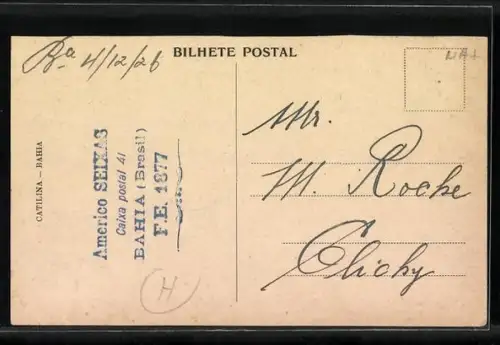 Bª 4/12/26
BILHETE POSTAL
CATILINA - BAHIA
Americo SEIXAS
Caixa postal 41
BAHIA (Brasil)
F.E. 1877
H
Mr.
M. Roche
Clichy